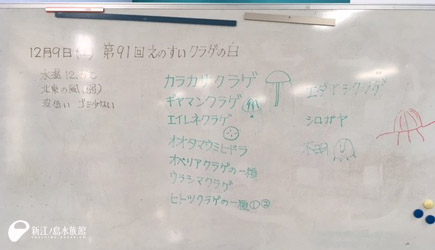 12月9日(土) 第91回えのすいクラゲの日
水温12.
北東の風(弱)
波低い ゴミ少ない
カラカサクラゲ
ギヤマンクラゲ
エイレネクラゲ
オオタマウミヒドラ
オベリアクラゲの一種
ウラシマクラゲ
ヒトツクラゲの一種①②
エダアシクラゲ
シロガヤ
不明
新江ノ島水族館